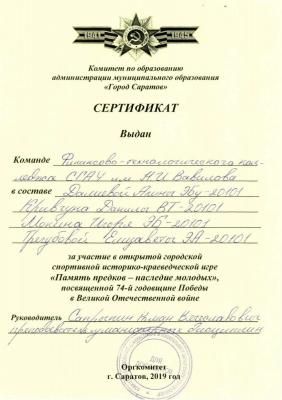 1941 1945
Комитет по образованию
администрации муниципального образования
«Город Саратов»
СЕРТИФИКАТ
Выдан
Команде Финансово-технологического кол-
леджа СГАУ им Н.И. Вавилова
в составе Далиевой Анны Эбу-20101
Кривгуна Данилы ВТ-20101
Мокина Игоря ЭБ-20101
Трегубовой Елизаветы ЗА-20101
за участие в открытой городской
спортивной историко-краеведческой игре
«Память предков – наследие молодых»,
посвященной 74-й годовщине Победы
в Великой Отечественной войне
Руководитель Сапрыкин Вячеславович
преподаватель гуманитарных дисциплин
Оргкомитет
г. Саратов, 2019 год